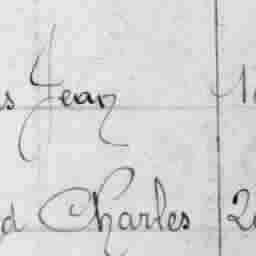 s Jean 1
d Charles 2